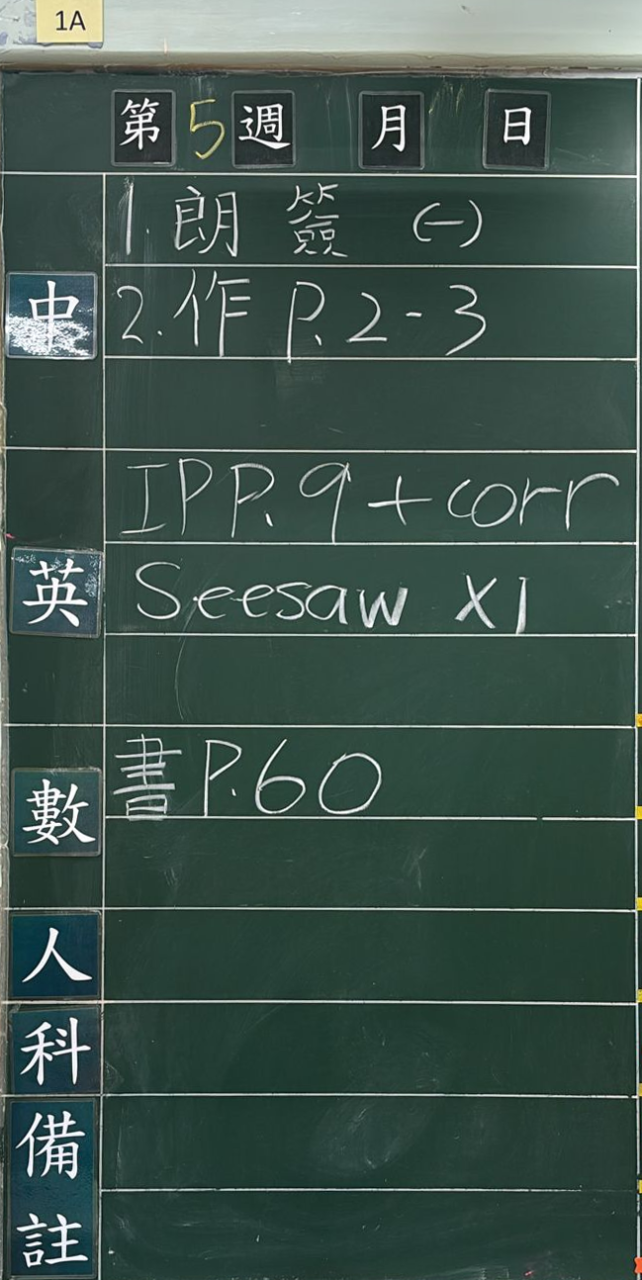 1A
第5週 月 日
1. 朗 簽 (一)
中
2. 作 P. 2-3
IP P. 9 + corr
英
Seesaw X1
書 P. 60
數
人
科
備
註